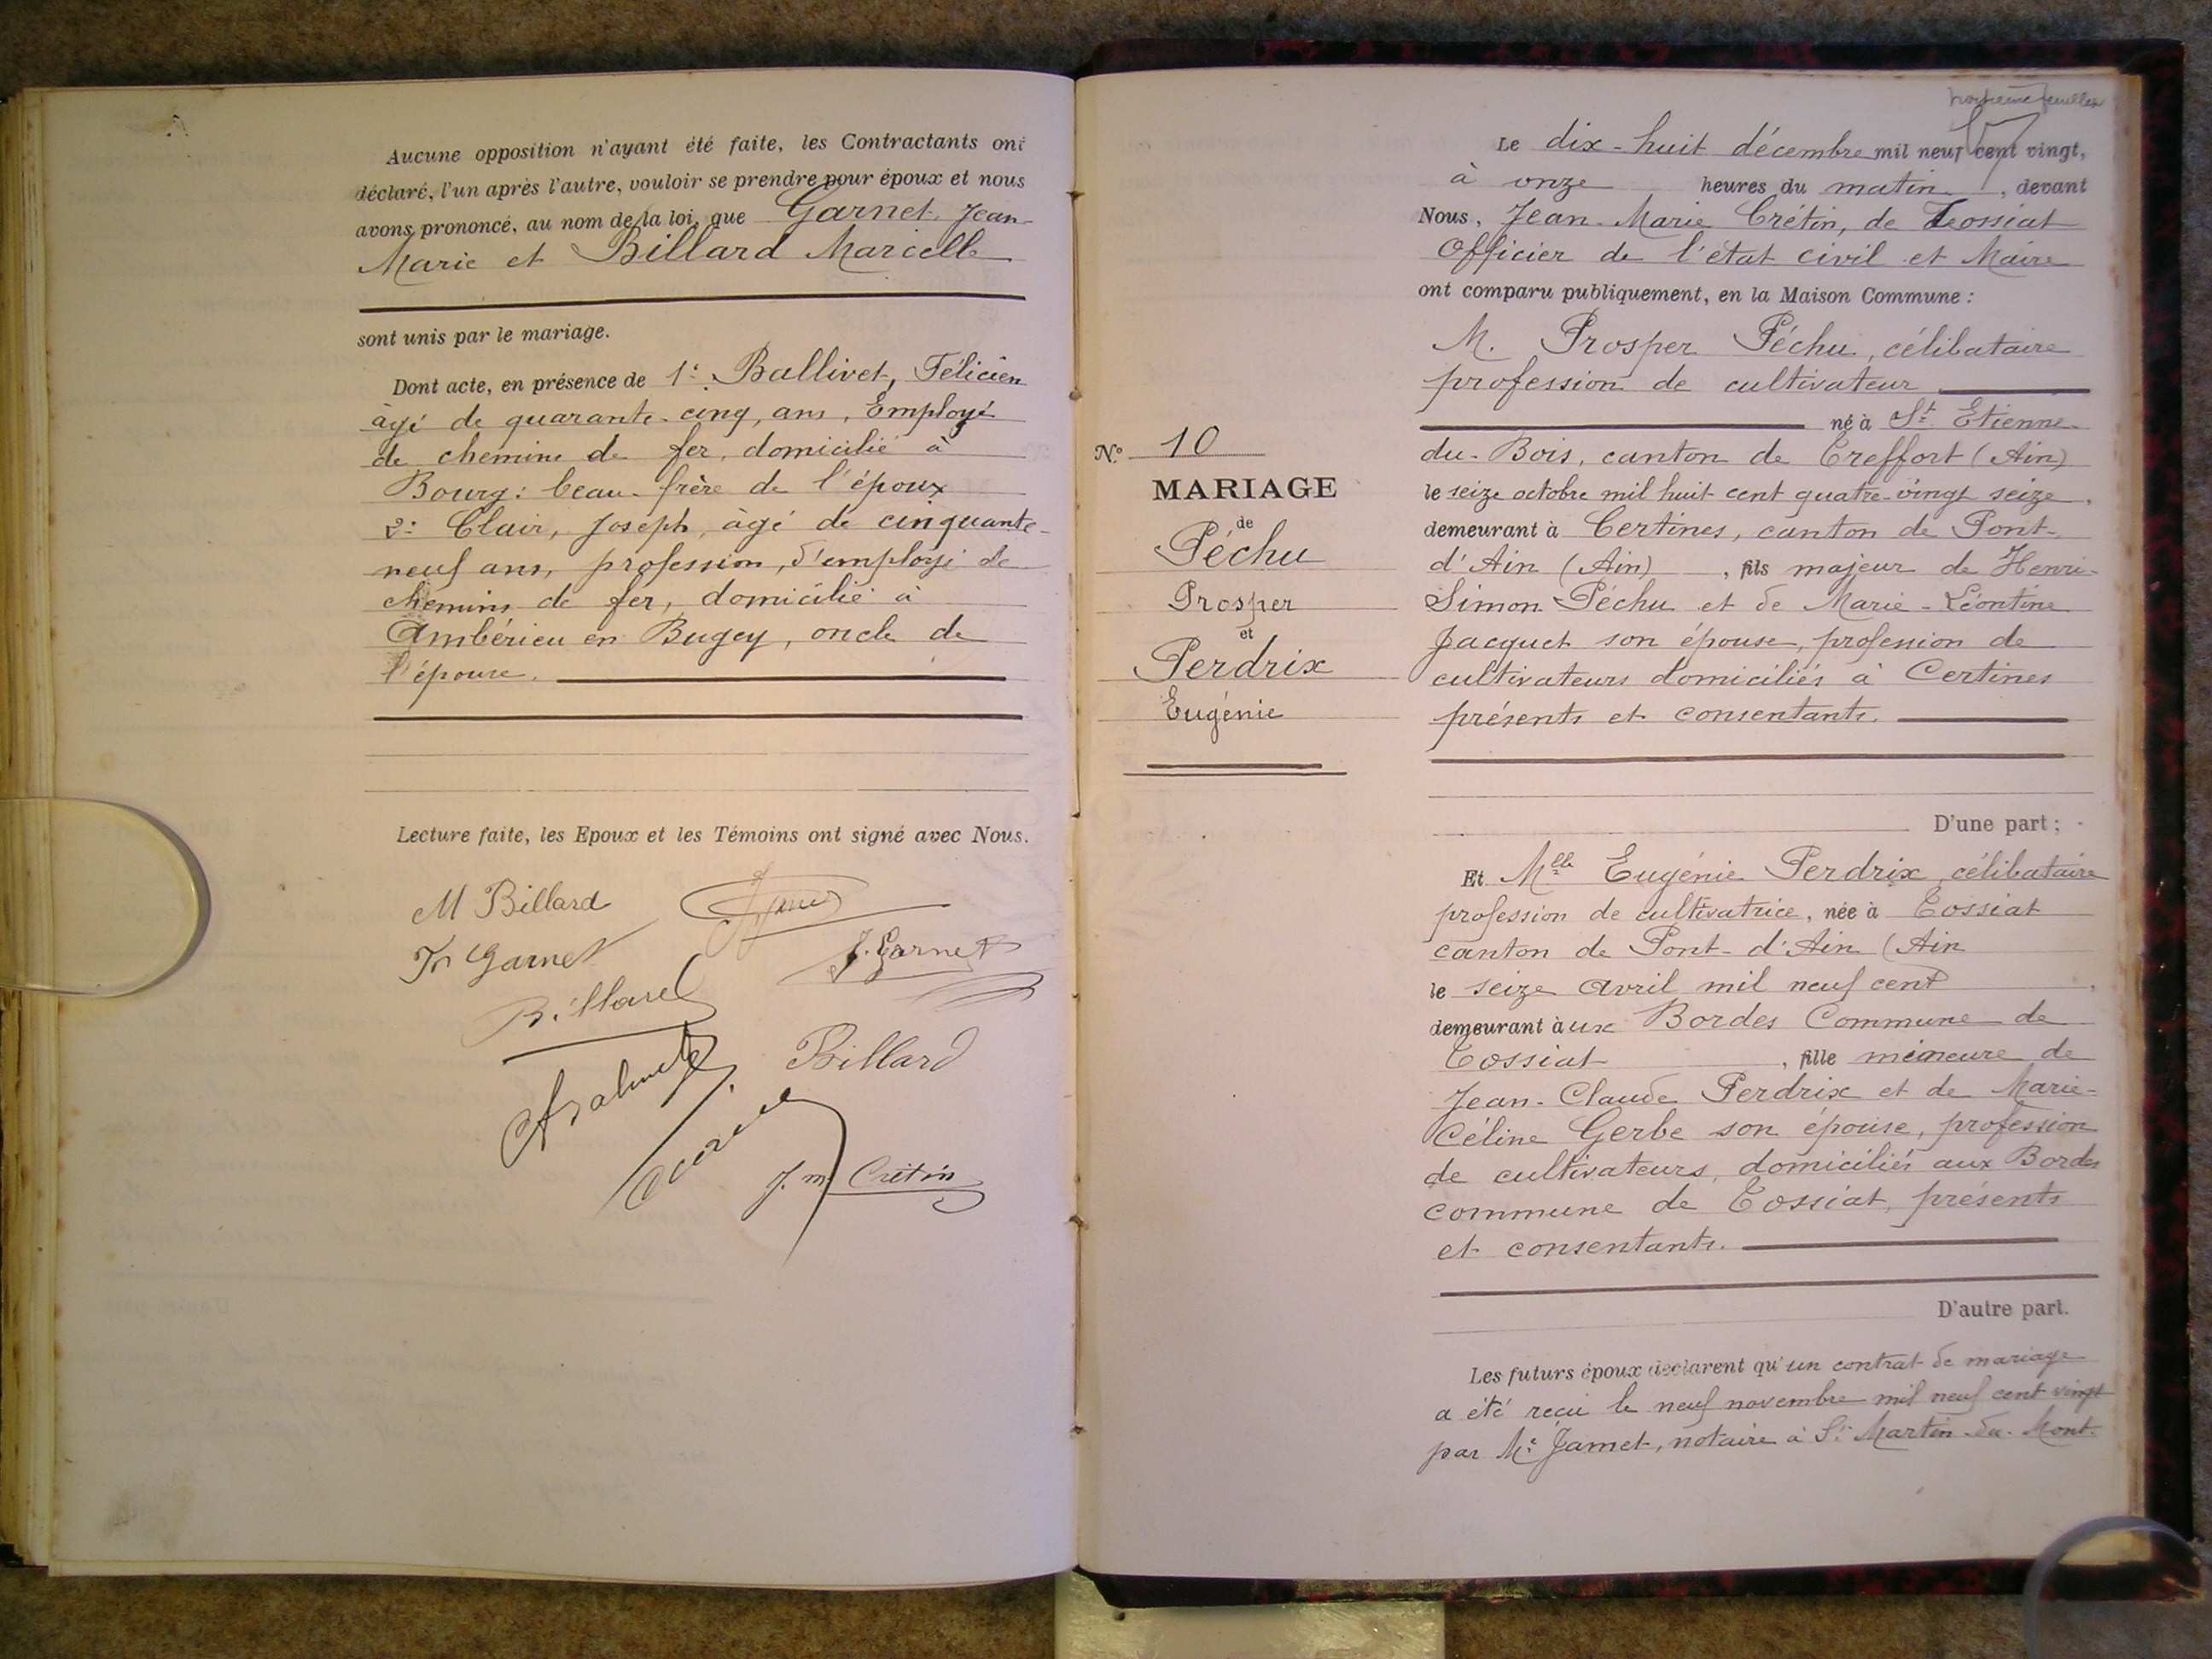 Aucune opposition n'ayant été faite, les Contractants ont
déclaré, l'un après l'autre, vouloir se prendre pour époux et nous
avons prononcé, au nom de la loi, que Garnet, Jean-
Marie et Billard Marcelle
sont unis par le mariage.
Dont acte, en présence de 1° Ballivet, Félicien
âgé de quarante-cinq, ans, Employé
de chemins de fer, domicilié à
Bourg: beau-frère de l'époux
2: Clair, Joseph, âgé de cinquante-
neuf ans, profession, d'employé de
chemins de fer, domicilié à
Ambérieu en Bugey, oncle de
l'épouse.
Lecture faite, les Epoux et les Témoins ont signé avec Nous.
M Billard
Jn Garnet
J. Garnet
Billard
Billard
J. m. Crétin
Le dix-huit décembre mil neuf cent vingt,
à onze heures du matin, devant
Nous, Jean-Marie Crétin, de Tossiat
Officier de l'état civil et Maire
ont comparu publiquement, en la Maison Commune :
M. Prosper Péchu, célibataire
profession de cultivateur
né à St Etienne-
du-Bois, canton de Treffort (Ain)
le seize octobre mil huit cent quatre-vingt seize,
demeurant à Certines, canton de Pont-
d'Ain (Ain), fils majeur de Henri-
Simon Péchu et de Marie-Léontine
Jacquet son épouse, profession de
cultivateurs domiciliés à Certines
présents et consentants.
D'une part ;
N° 10
MARIAGE
de
Péchu
Prosper
et
Perdrix
Eugénie
Et Mlle Eugénie Perdrix, célibataire
profession de cultivatrice, née à Tossiat
canton de Pont-d'Ain (Ain
le seize avril mil neuf cent,
demeurant à ux Bordes Commune de
Tossiat, fille mineure de
Jean-Claude Perdrix et de Marie-
Céline Gerbe son épouse, profession
de cultivateurs, domiciliés aux Bordes
commune de Tossiat, présents
et consentants.
D'autre part.
Les futurs époux déclarent qu'un contrat de mariage
a été reçu le neuf novembre mil neuf cent vingt
par Me Jamet, notaire à St Martin-du-Mont.